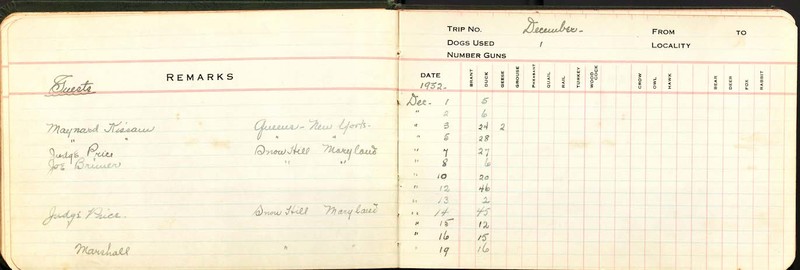 REMARKS
Guests
Maynard Kissam Queens - New York.
" " " "
Judge Price Snow Hill Maryland
Joe Brimer " "
Judge Price. Snow Hill Maryland
Marshall " "
TRIP NO. December - FROM TO
DOGS USED 1 LOCALITY
NUMBER GUNS
DATE BRANT DUCK GEESE GROUSE PHEASANT QUAIL RAIL TURKEY WOOD COCK CROW OWL HAWK BEAR DEER FOX RABBIT
1932.
Dec. 1 5
" 2 6
" 3 24 2
" 5 28
" 7 27
" 8 6
" 10 20
" 12 46
" 13 2
" 14 45
" 15 12
" 16 15
" 19 16